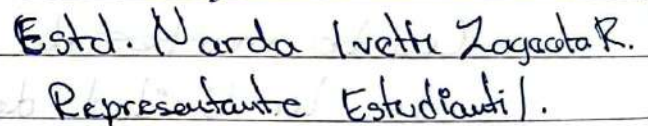 Estd. Narda Ivette Zagacota R.
Representante Estudiantil.